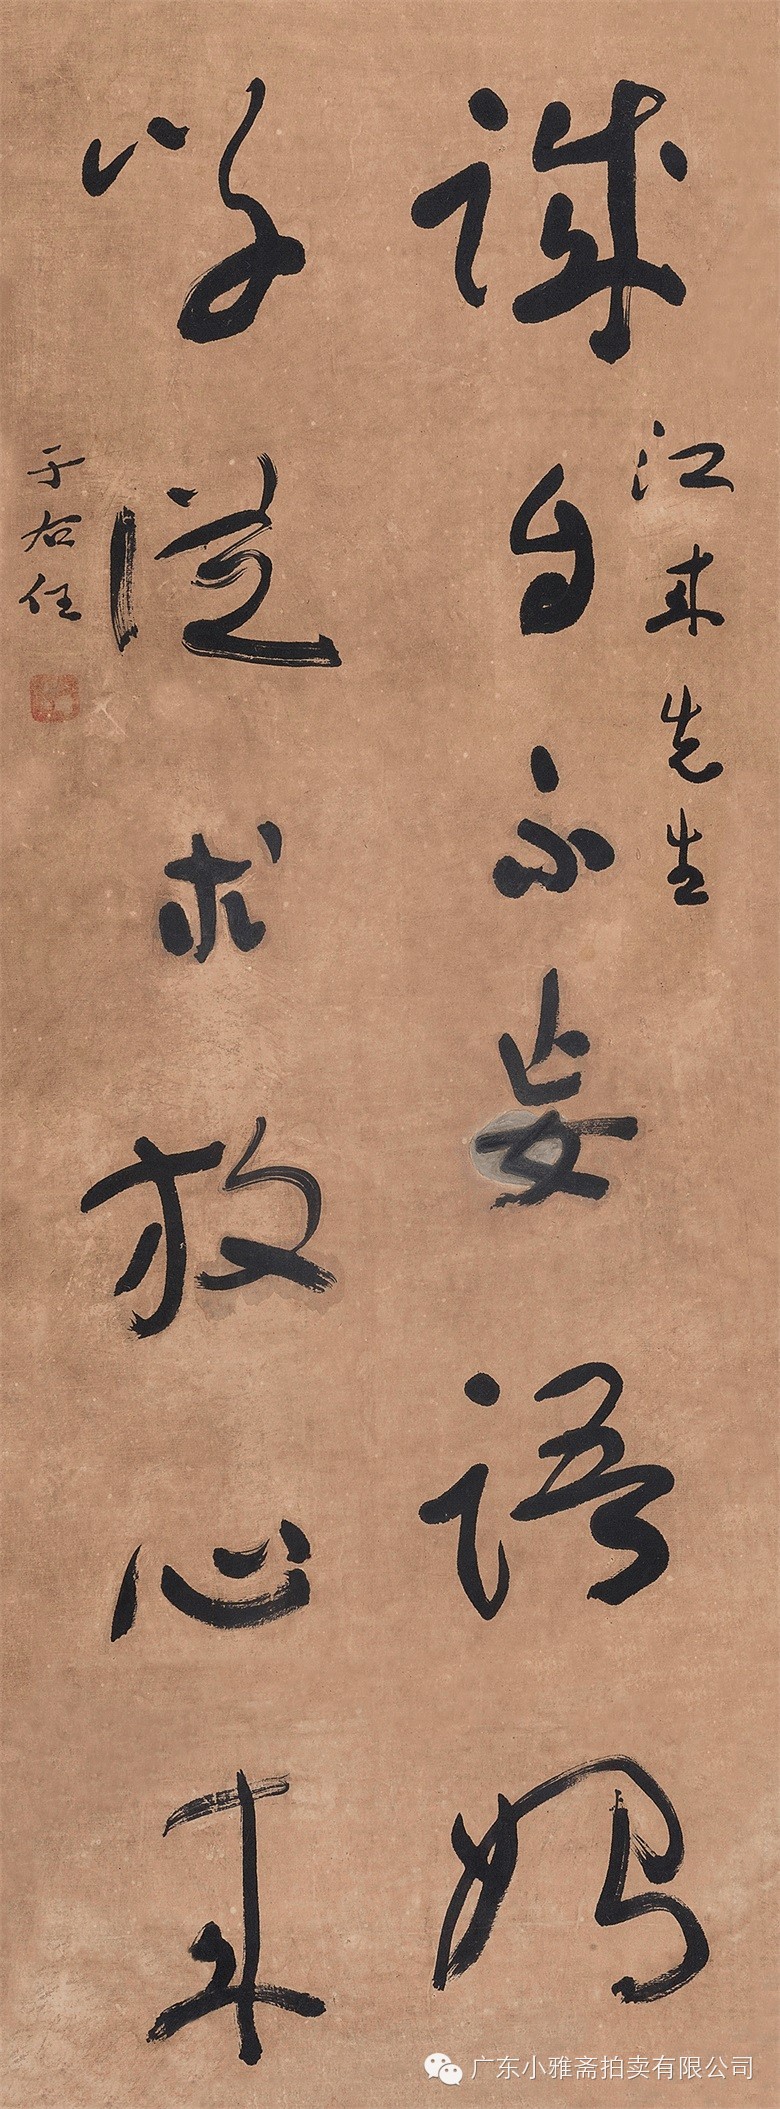 江来先生
诚自不妄语始
学从求放心来
于右任
广东小雅斋拍卖有限公司